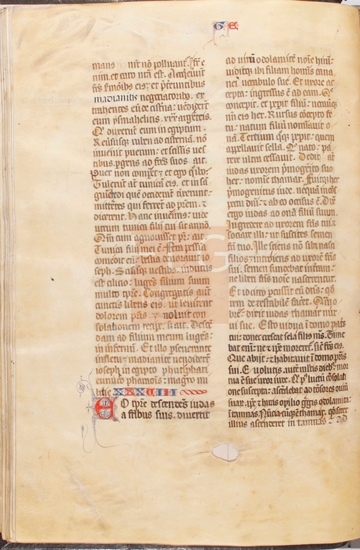 G E
manus nr̄e nō polluant. fr̄ eni
et caro nr̄a est. Acq̄ieuert
fr̄es et p̄tereuntibus
madianitis negociatoribus ex
trahentes eū de cisterna vendidert
eum ysmahelitis. xx. argenteis
Qui duxerunt eum in egyptum.
Reuersusq; ruben ad cisternā. nō
inuenit puerum. et scissis ves
tibus pergens ad fr̄es suos ait.
Puer non comparet et ego quo ibo?
Tulerūt aūt tunicā eius. et in sā
mittētes qui ferrēt ad pr̄em. et
dicerent. Hanc inuenimus. uide
utrum tunica filii tui sit annō.
Quam cum agnouisset pr̄ ait.
Tunica filii mei ē. fera pessima
comedit eum. bestia deuorauit io
seph. Scissisq; uestibus. indutus
est cilicio. lugēs filium suum
multo tp̄re. Congregatis aūt
cunctis liberis eius ut lenirent
dolorem patris. noluit con
solationem recipere. sed ait. Descen
dam ad filium meum lugēs
in infernū. Et illo perseuerante
in fletu. madianite uendiderūt
ioseph in egypto phutiphari
eunucho pharaonis. magistro mi
litie. XXXVIII
Eo tp̄re descendēs iudas
a fr̄ibus suis. diuertit
ad uirū odolamitē noīe hirā.
uiditq; ibi filiam hoīs cana
nei uocabulo sue. Et uxore ac
cepta. ingressus ē ad eam. Que
concepit. et peperit filiū. uocauitq;
nomen eius her. Rursus concepto fe
tu. natum filiū nominauit o
nā. Tertium q̄q; peperit. quem
appellauit sela. Quo nato. pa
rere ultra cessauit. Dedit aūt
iudas uxorem primogenito suo
her. nomine thamar. fuitq; her
primogenitus iude. nequā in cōspec
tu dn̄i. et ab eo occisus ē. Dix
ergo iudas ad onā filiū suum.
Ingredere ad uxorem fr̄is tui. et
sociare illi. ut suscites semen
fr̄i tuo. Ille sciens nō sibi nasci
filios. introiens ad uxorē fr̄is
sui. semen fundebat in terram.
ne liberi fr̄is noīe nascerentur.
Et idcirco percussit eū dn̄s. quod
rem detestabilē faceret. Quāo
brem dixit iudas thamar nurui
sue. Esto uidua in domo patris
tui. donec crescat sela filius meus. Time
bat enī ne et ipse moreretur sicut fr̄es eius.
Que abiit. et habitauit in domo patris
sui. Euolutis aūt multis diebus. mor
tua est sue uxor iude. Qui post luctū cōsolati
one suscepta. ascendebat ad tonsores ouiū
suarū. ipse et hiras opilio gregis odolamita
in tamnas. Nūciatūq; ē thamar. q̄ socer
illius ascenderet in tamnas